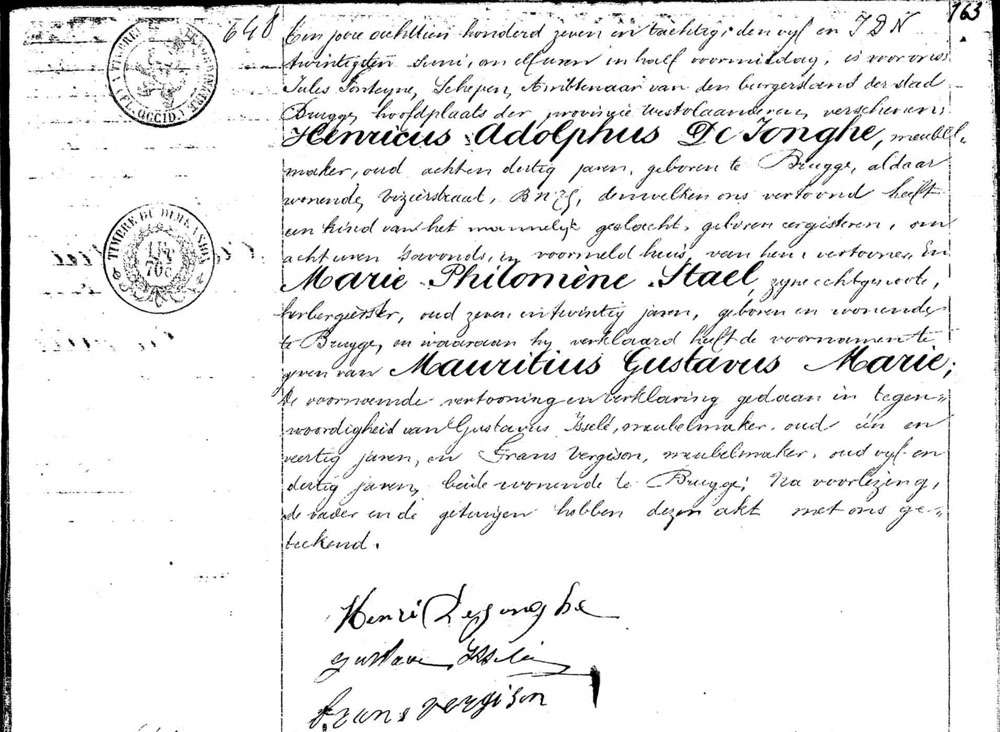 163
648
JDN
Ten jare achttien honderd zeven en tachtig, den vyf en
twintigsten Juni, om elf uren en half voormiddag, is voor ons
Jules Fonteyne, Schepen, Ambtenaar van den burgerstand der stad
Brugge, hoofdplaats der provincie Westvlaanderen, verschenen
Henricus Adolphus De Jonghe, meubel-
maker, oud acht en dertig jaren, geboren te Brugge, aldaar
wonende, Vizierstraat, denwelken ons vertoond heeft
een kind van het mannelyk geslacht, geboren eergisteren, om
acht uren 's avonds, in voormeld huis, van hem vertooner En
Marie Philomène Stael, zyne echtgenoote,
herbergierster, oud zeven en twintig jaren, geboren en wonende
te Brugge, en waaraan hy verklaard heeft de voornamen te
geven van Mauritius Gustavus Marie;
de voornoemde vertooning en verklaring gedaan in tegen=
woordigheid van Gustavus Isselé, meubelmaker, oud één en
veertig jaren, en Frans Vergison, meubelmaker, oud vyf en
dertig jaren, beide wonende te Brugge; Na voorlezing,
de vader en de getuigen hebben dezen akt met ons ge=
teekend.
Henri Dejonghe
Gustave
Frans Vergison
TIMBRE EXTRAORDINAIRE
(FL. OCCID.)
TIMBRE DE DIMENSION
70c